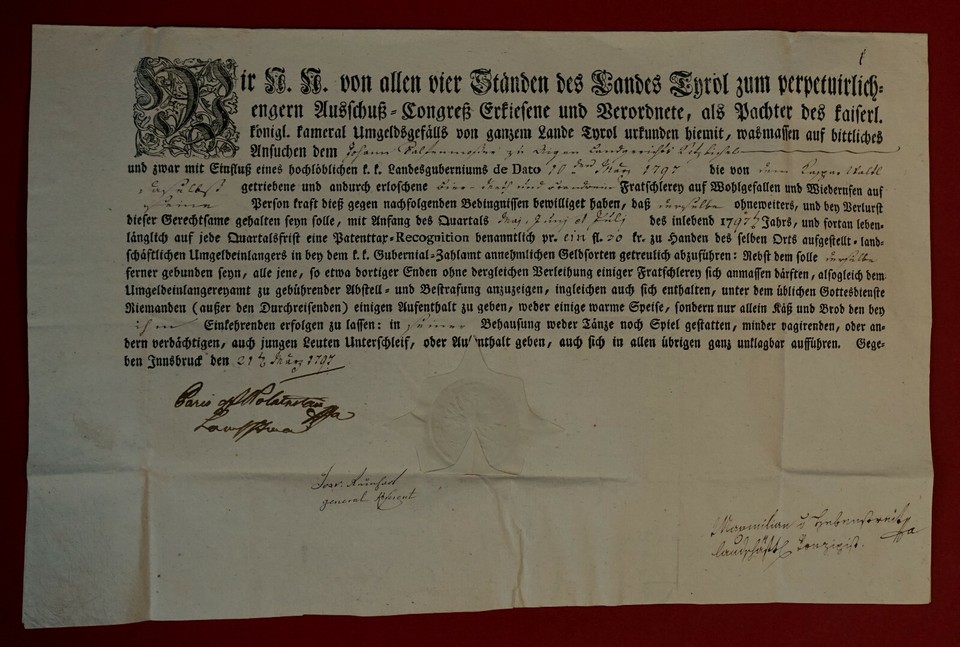 Wir N. N. von allen vier Ständen des Landes Tyrol zum perpetuirlich-
engern Ausschuß-Congreß Erkiesene und Verordnete, als Pachter des kaiserl.
königl. kameral Umgeldsgefälls von ganzem Lande Tyrol urkunden hiemit, wasmassen auf bittliches
Ansuchen dem Johann zu Landgerichts Kitzbichel
und zwar mit Einfluß eines hochlöblichen k. k. Landesguberniums de Dato 10 den März 1797 die von dem
daselbst getriebene und andurch erloschene und Fratschlerey auf Wohlgefallen und Wiederufen auf
seine Person kraft dieß gegen nachfolgenden Bedingnissen bewilliget haben, daß derselbe ohneweiters, und bey Verlurst
dieser Gerechtsame gehalten seyn solle, mit Anfang des Quartals May, Juny et July des inlebend 1797 Jahrs, und fortan leben-
länglich auf jede Quartalsfrist eine Patenttax-Recognition benanntlich pr. ein fl. 30 kr. zu Handen des selben Orts aufgestellt-land-
schäftlichen Umgeldeinlangers in bey dem k. k. Gubernial-Zahlamt annehmlichen Geldsorten getreulich abzuführen: Nebst dem solle derselbe
ferner gebunden seyn, alle jene, so etwa dortiger Enden ohne dergleichen Verleihung einiger Fratschlerey sich anmassen därften, alsogleich dem
Umgeldeinlangereyamt zu gebührender Abstell- und Bestrafung anzuzeigen, ingleichen auch sich enthalten, unter dem üblichen Gottesdienste
Niemanden (außer den Durchreisenden) einigen Aufenthalt zu geben, weder einige warme Speise, sondern nur allein Käß und Brod den bey
ihm Einkehrenden erfolgen zu lassen: in seiner Behausung weder Tänze noch Spiel gestatten, minder vagirenden, oder an-
dern verdächtigen, auch jungen Leuten Unterschleif, oder Aufenthalt geben, auch sich in allen übrigen ganz unklagbar aufführen. Gege-
ben Innsbruck den 21 März 1797
Paris
general
Maximilian v Hebenstreit
landschäftl